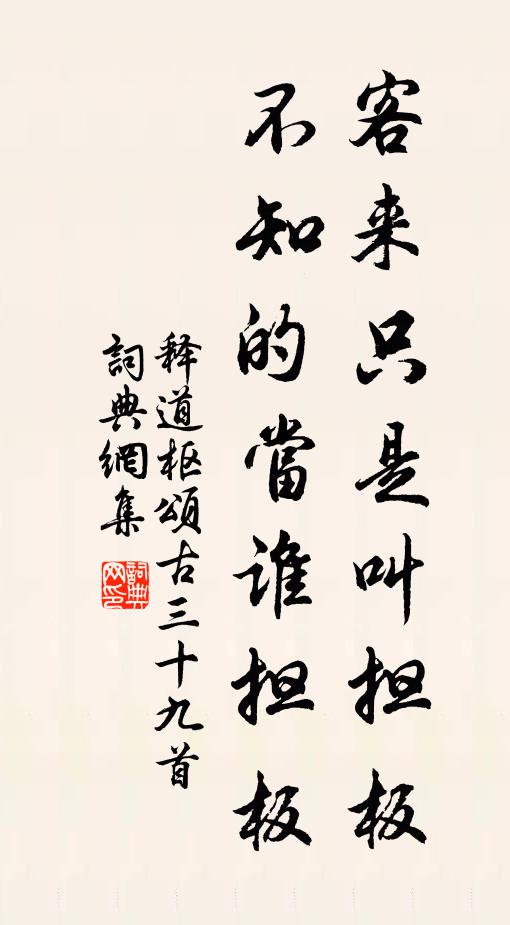 客来只是叫担板
不知的當誰担板
释道枢頌古三十九首
詞典網集
詞典网印